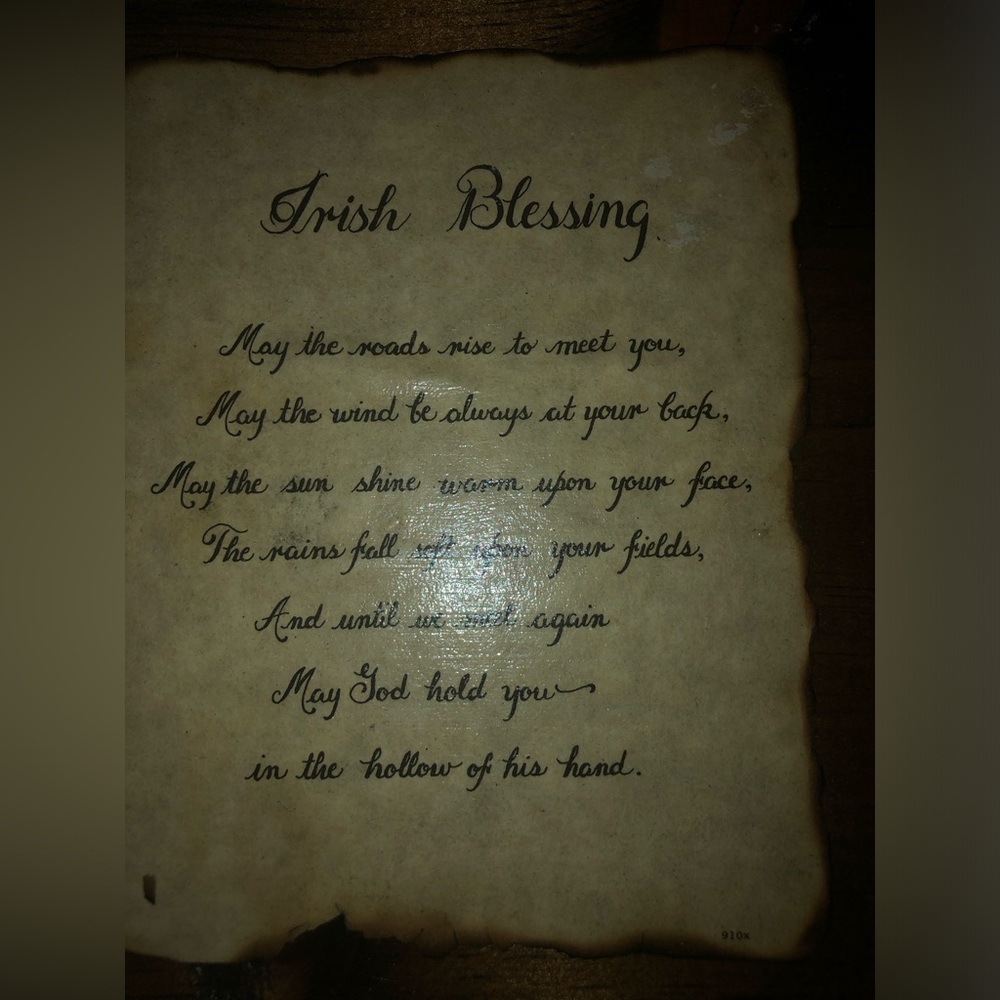 Irish Blessing
May the roads rise to meet you,
May the wind be always at your back,
May the sun shine warm upon your face,
The rains fall soft upon your fields,
And until we meet again
May God hold you
in the hollow of his hand.
910x